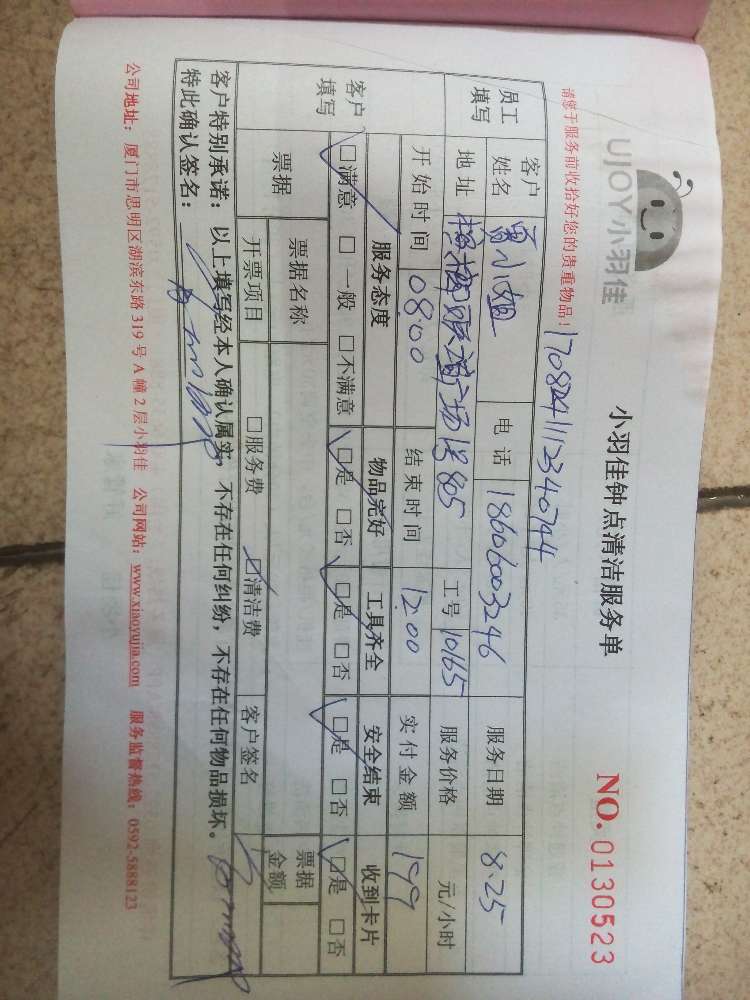 UJOY小羽佳
小羽佳钟点清洁服务单
NO. 0130523
请您于服务前收拾好您的贵重物品！1708241112340744
员工填写 客户姓名 小姐 电话 18606003246 服务日期 8.25
地址 805 工号 10165 服务价格 元/小时
开始时间 08:00 结束时间 12:00 实付金额 199
客户填写 服务态度 物品完好 工具齐全 安全结束 收到卡片
☑满意 □一般 □不满意 ☑是 □否 ☑是 □否 ☑是 □否 ☑是 □否
票据 票据名称 票据金额
开票项目 □服务费 ☑清洁费 客户签名
客户特别承诺：以上填写经本人确认属实，不存在任何纠纷，不存在任何物品损坏。
特此确认签名：
公司地址：厦门市思明区湖滨东路319号A幢2层小羽佳 公司网站：www.xiaoyujia.com 服务监督热线：0592-5888123